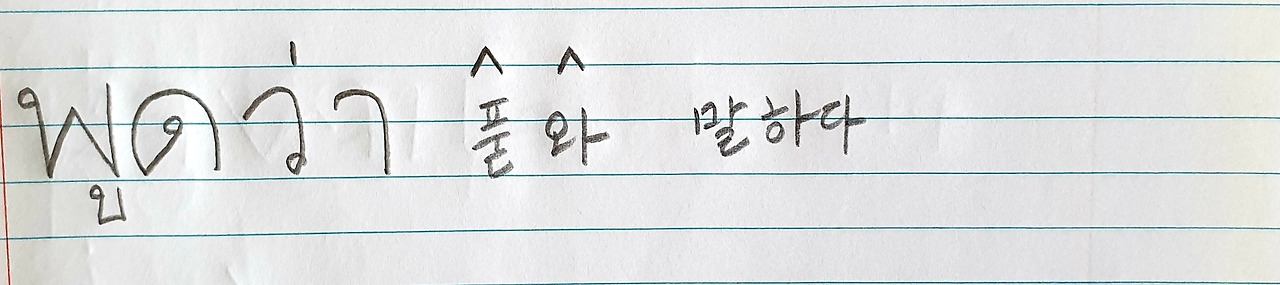 พูดว่า ^풀 ^와 말하다